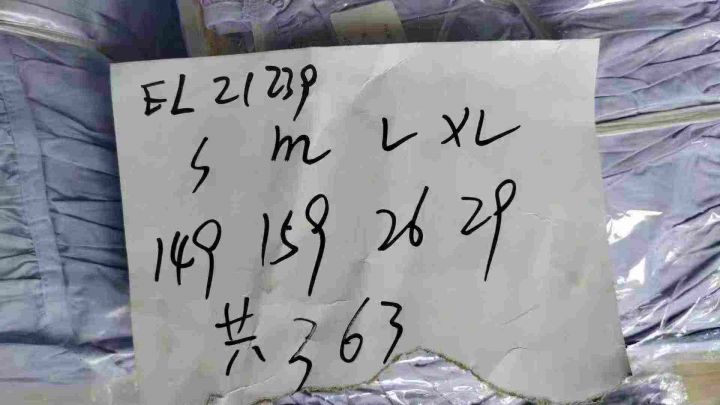 EL 21239
S m L XL
149 159 26 29
共 363